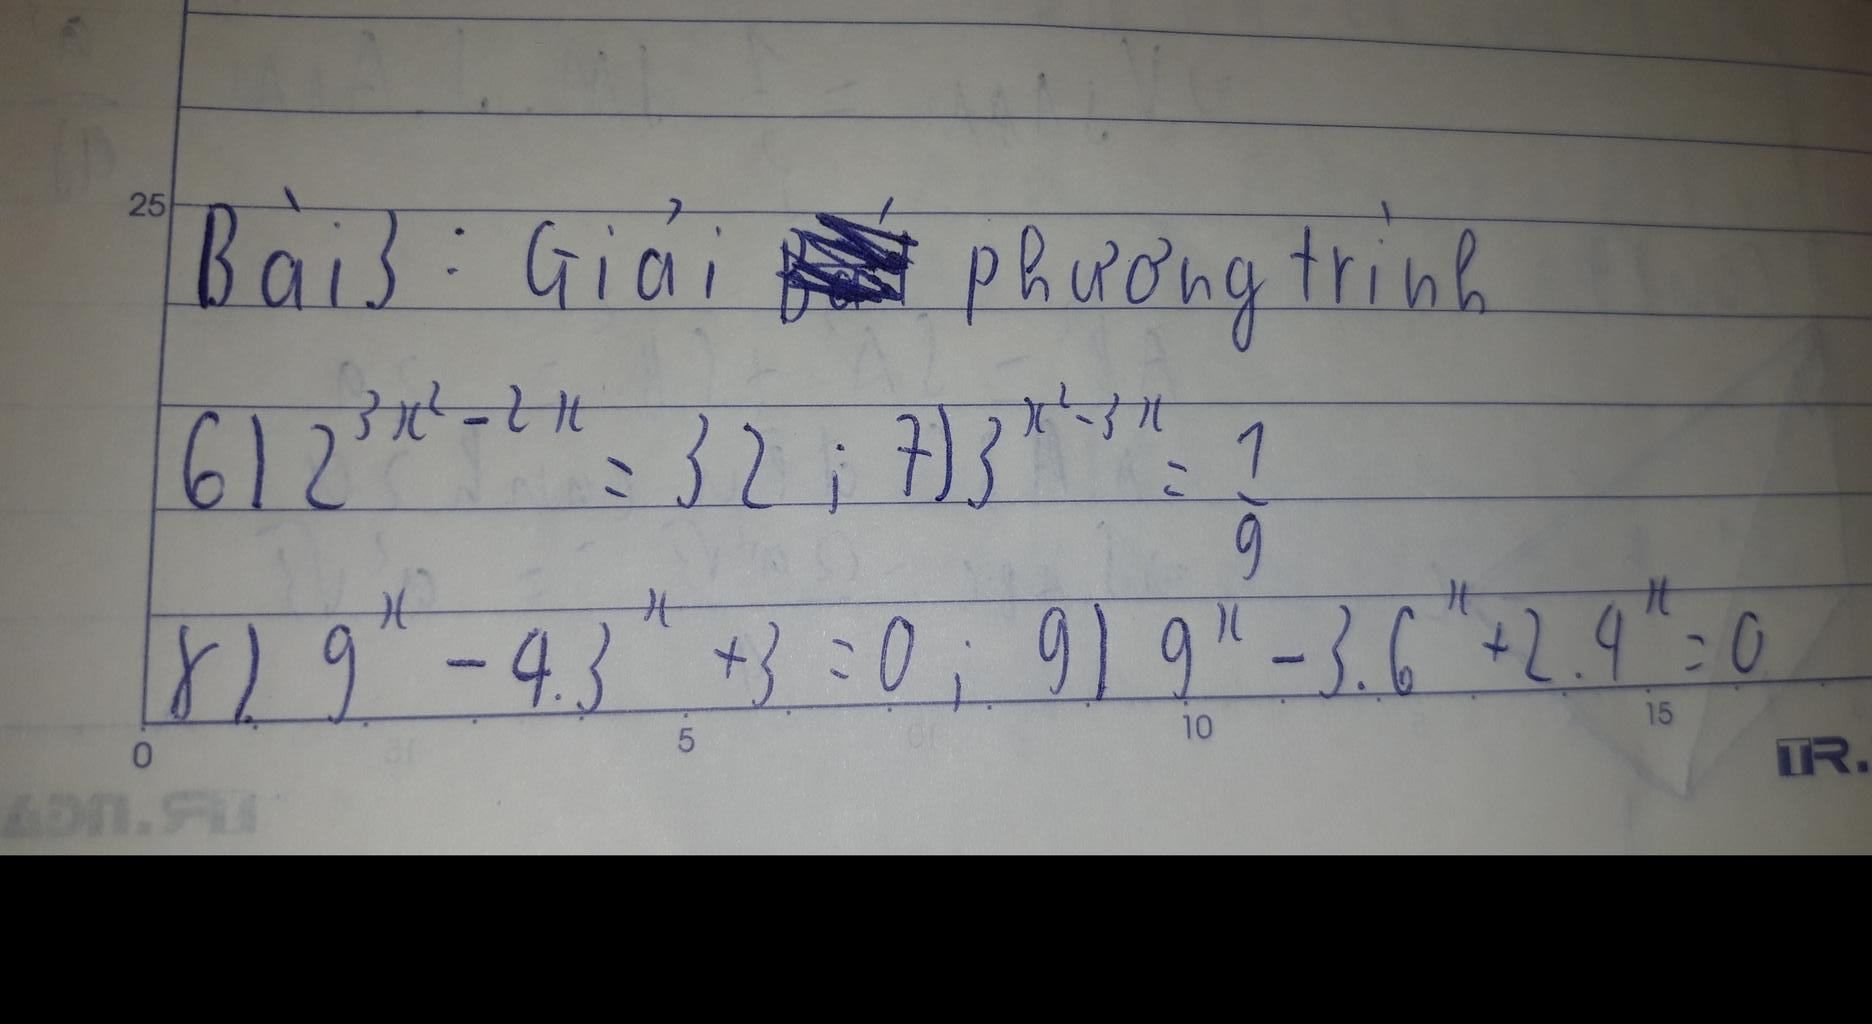 25
Bài 3 : Giải phương trình
6) 2^{3x²-2x} = 32 ; 7) 3^{x²-3x} = 1/9
8) 9^x - 4.3^x + 3 = 0 ; 9) 9^x - 3.6^x + 2.4^x = 0
0 5 10 15
TR.